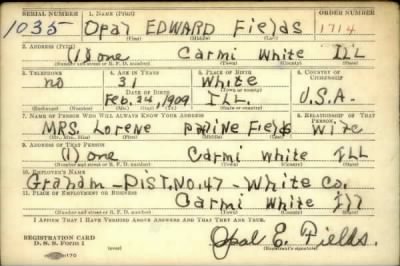 SERIAL NUMBER 1. NAME (Print) ORDER NUMBER
1035 Opal EDWARD Fields 1714
(First) (Middle) (Last)
2. ADDRESS (Print)
(1) one Carmi White ILL
(Number and street or R. F. D. number) (Town) (County) (State)
3. TELEPHONE 4. AGE IN YEARS 5. PLACE OF BIRTH 6. COUNTRY OF CITIZENSHIP
no 31 White
DATE OF BIRTH (Town or county)
Feb. 24, 1909 ILL. U.S.A.
(Exchange) (Number) (Mo.) (Day) (Yr.) (State or country)
7. NAME OF PERSON WHO WILL ALWAYS KNOW YOUR ADDRESS 8. RELATIONSHIP OF THAT PERSON
MRS. Lorene Fields Wife
(Mr., Mrs., Miss) (First) (Middle) (Last)
9. ADDRESS OF THAT PERSON
(1) one Carmi White ILL
(Number and street or R. F. D. number) (Town) (County) (State)
10. EMPLOYER'S NAME
Graham - DIST. NO. 47 - White Co.
11. PLACE OF EMPLOYMENT OR BUSINESS
Carmi White Ill
(Number and street or R. F. D. number) (Town) (County) (State)
I AFFIRM THAT I HAVE VERIFIED ABOVE ANSWERS AND THAT THEY ARE TRUE.
REGISTRATION CARD
D. S. S. Form 1 Opal E. Fields.